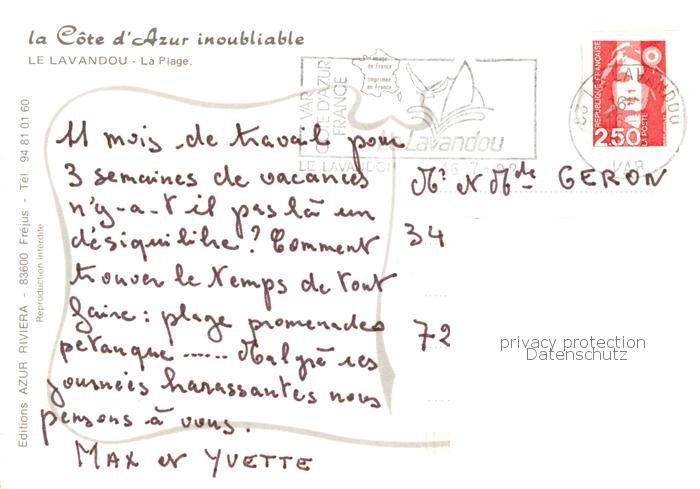 la Côte d'Azur inoubliable
LE LAVANDOU - La Plage.
Editions AZUR RIVIERA - 83600 Fréjus - Tél. 94 81 01 60
Reproduction interdite
VAR
COTE D'AZUR
FRANCE
image
de France
Imprimée
en France
Le Lavandou
LE LAVANDOU
REPUBLIQUE FRANÇAISE
2,50
LA POSTE
83 LE LAVANDOU
VAR
11 mois de travail pour
3 semaines de vacances
n'y-a-t il pas là un
déséquilibre? Comment
trouver le temps de tout
faire: plage promenades
pétanque ...... Malgré ces
journées harassantes nous
pensons à vous.
MAX et YVETTE
Mr et Mde GERON
34
72
privacy protection
Datenschutz